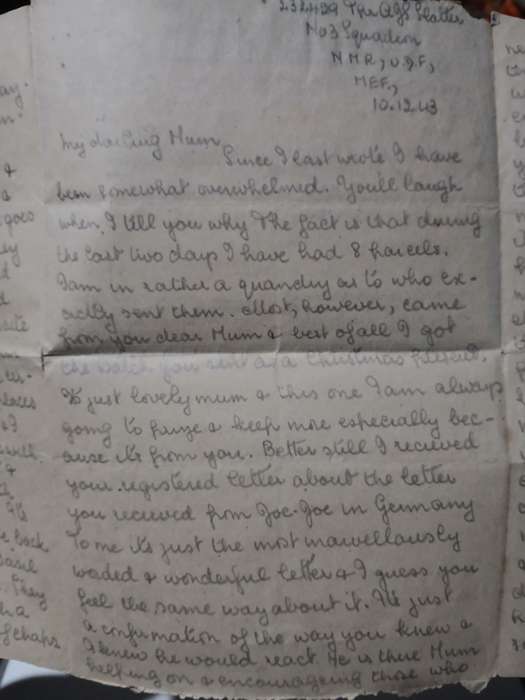 232429 Tpr AGS Slatter
No 3 Squadron
NMR, UDF,
MEF,
10.12.43
My darling Mum,
Since I last wrote I have
been somewhat overwhelmed. You'll laugh
when I tell you why The fact is that during
the last two days I have had 8 parcels.
I am in rather a quandry as to who ex-
actly sent them. Most, however, came
from you dear Mum & best of all I got
the watch you sent as a Christmas present.
Its just lovely mum & this one I am always
going to prize & keep more especially bec-
ause its from you. Better still I recieved
your registered letter about the letter
you recieved from Joe. Joe in Germany
To me its just the most marvellously
worded & wonderful letter & I guess you
feel the same way about it. Its just
a confirmation of the way you knew &
I knew he would react. He is there Mum
helping on & encourageing those who